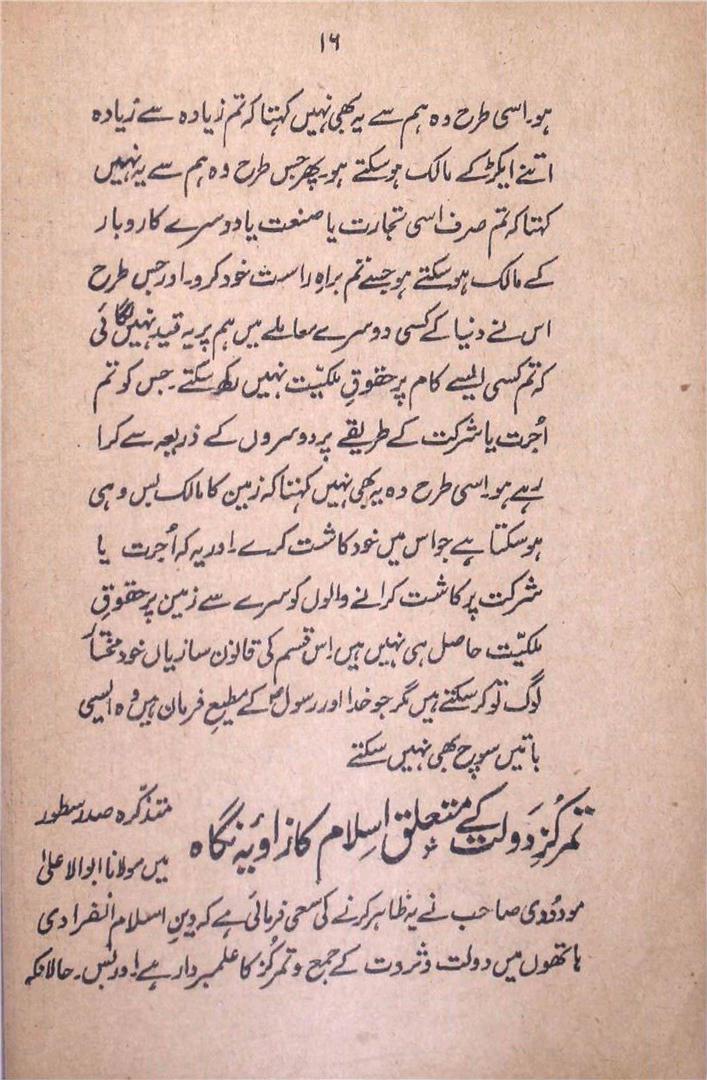 ۱۶
ہو۔ اسی طرح وہ ہم سے یہ بھی نہیں کہتا کہ تم زیادہ سے زیادہ
اتنے ایکڑ کے مالک ہو سکتے ہو۔ پھر جس طرح وہ ہم سے یہ نہیں
کہتا کہ تم صرف اسی تجارت یا صنعت یا دوسرے کاروبار
کے مالک ہو سکتے ہو جسے تم براہِ راست خود کرو۔ اور جس طرح
اس نے دنیا کے کسی دوسرے معاملے میں ہم پر یہ قید نہیں لگائی
کہ تم کسی ایسے کام پر حقوقِ ملکیّت نہیں رکھ سکتے۔ جس کو تم
اُجرت یا شرکت کے طریقے پر دوسروں کے ذریعہ سے کرا
رہے ہو۔ اسی طرح وہ یہ بھی نہیں کہتا کہ زمین کا مالک بس وہی
ہو سکتا ہے جو اس میں خود کاشت کرے۔ اور یہ کہ اُجرت یا
شرکت پر کاشت کرانے والوں کو سرے سے زمین پر حقوقِ
ملکیّت حاصل ہی نہیں ہیں۔ اِس قسم کی قانون سازیاں خود مختار
لوگ تو کر سکتے ہیں مگر جو خدا اور رسولؐ کے مطیعِ فرمان ہیں وہ ایسی
باتیں سوچ بھی نہیں سکتے
تمرکُزِ دَولت کے متعلق اِسلام کا زاویۂ نگاہ
متذکّرہ صدر سطور
میں مولانا ابوالاعلیٰ
مودُودی صاحب نے یہ ظاہر کرنے کی سعی فرمائی ہے کہ دینِ اسلام انفرادی
ہاتھوں میں دولت و ثروت کے جمع و تمرکُز کا علمبردار ہے! اور بس۔ حالانکہ